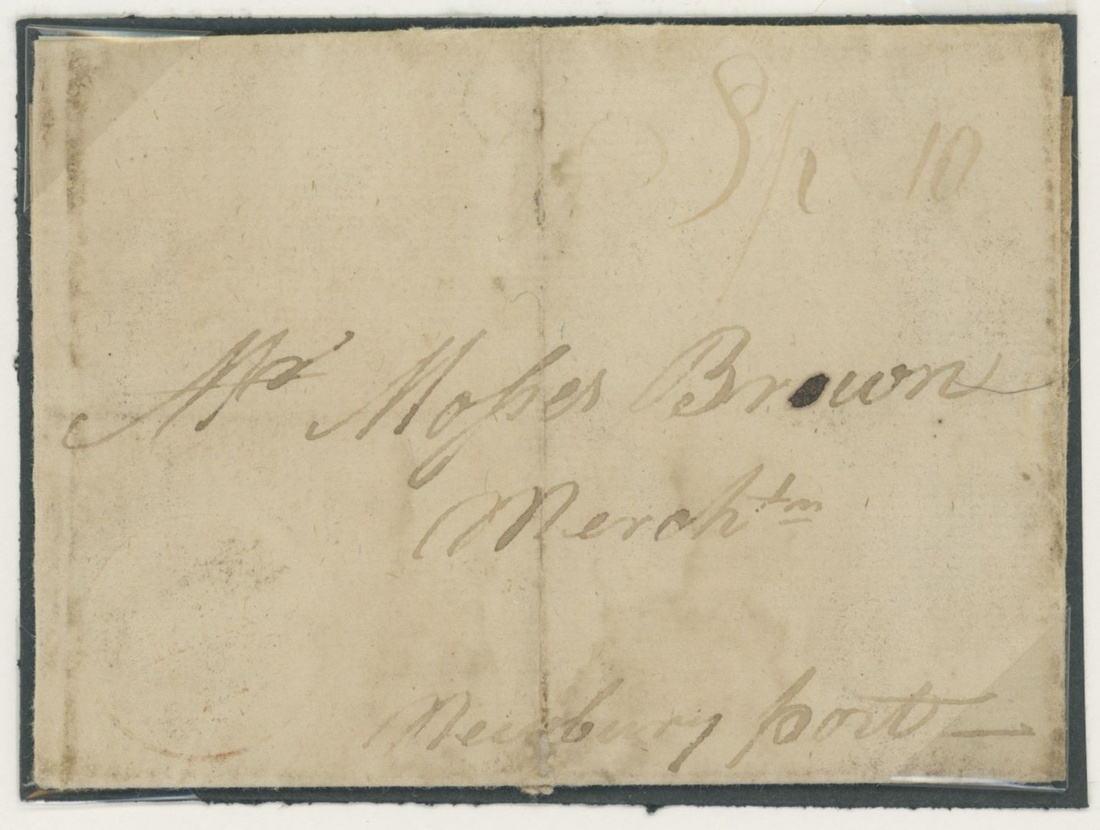 10
Mr Mosses Brown
Merch^t
Newbury port